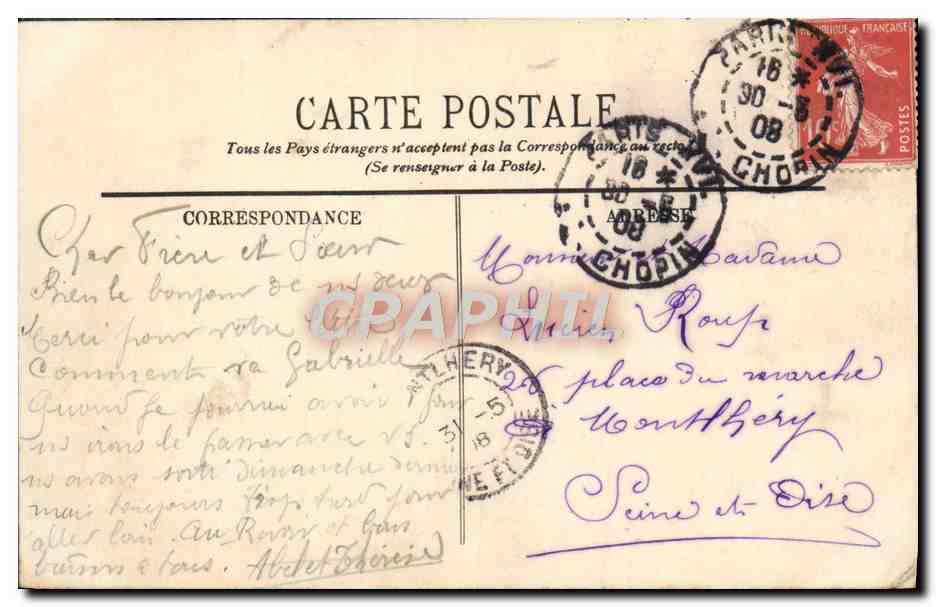 RÉPUBLIQUE FRANÇAISE
POSTES
10c
PARIS NUIT
16 *
30 -5
08
CHOPIN
PARIS NUIT
16 *
30 -5
08
CHOPIN
CARTE POSTALE
Tous les Pays étrangers n'acceptent pas la Correspondance au recto
(Se renseigner à la Poste).
CORRESPONDANCE
ADRESSE
Cher Frère et Sœur
Bien le bonjour de ns deux
Merci pour votre
Comment va Gabrielle
Quand je pourrai avoir 1 jour
ns irons le passer avec vs.
ns avons sorti dimanche dernier
mais toujours trop tard pour
aller loin. Au Revoir et bons
baisers à tous. Abel et Thérèse
Monsieur et Madame
Lucien Roup
26 place du marche
Montlhéry
Seine et Oise
NTLHERY
31 -5
08
NE ET OISE
CPAPHIL